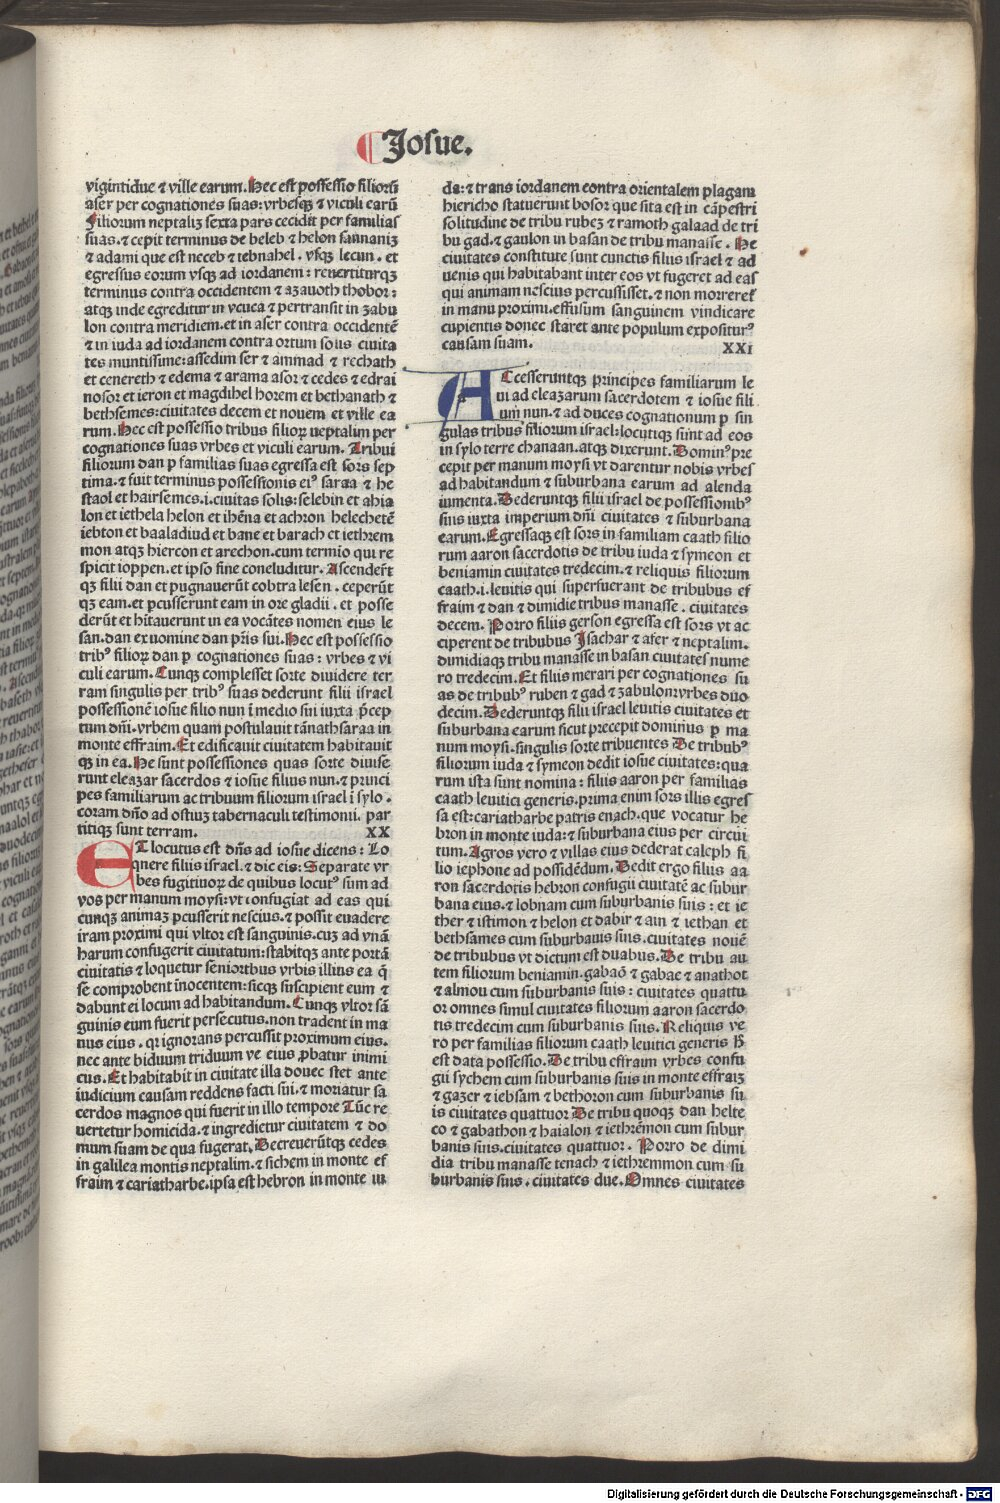 Josue.
vigintidue ⁊ ville earum. Hec est possessio filioꝝ
aser per cognationes suas: vrbesqꝫ ⁊ viculi earū
Filiorum neptaliꝫ sexta pars cecidit per familias
suas. ⁊ cepit terminus de heleb ⁊ helon sannaniꝫ
⁊ adami que est neceb ⁊ iebnahel. vsqꝫ lecun. et
egressus eorum vsqꝫ ad iordanem: reuertiturqꝫ
terminus contra occidentem ⁊ azauoth thobor:
atqꝫ inde egreditur in vcuca ⁊ pertransit in zabu
lon contra meridiem. et in aser contra occidentē
⁊ in iuda ad iordanem contra ortum solis ciuita
tes muntissime: assedim ser ⁊ ammad ⁊ rechath
et cenereth ⁊ edema ⁊ arama asor ⁊ cedes ⁊ edrai
nosor et ieron et magdihel horem et bethanath ⁊
bethsemes: ciuitates decem et nouem et ville ea
rum. Hec est possessio tribus filioꝝ neptalim per
cognationes suas vrbes et viculi earum. Tribui
filiorum dan p familias suas egressa est sors sep
tima. ⁊ fuit terminus possessionis eiꝰ saraa ⁊ he
staol et hairsemes. i. ciuitas solis: selebin et ahia
lon et iethela helon et ihēna et achron helechetē
iebton et baaladiud et bane et barach et iethrem
mon atqꝫ hiercon et arechon. cum termio qui re
spicit ioppen. et ipso fine coneluditur. Ascendert̄
qꝫ filii dan et pugnauerūt cobtra lesen. ceperūt
qꝫ eam. et pcusserunt eam in ore gladii. et posse
derūt et hītauerunt in ea vocātes nomen eius le
san. dan ex nomine dan pr̄is sui. Hec est possessio
tribꝰ filioꝝ dan p cognationes suas: vrbes ⁊ vi
culi earum. Cunqꝫ complesset sorte diuidere ter
ram singulis per tribꝰ suas dederunt filii israel
possessionē iosue filio nun ī medio sui iuxta p̄cep
tum dn̄i. vrbem quam postulauit tānathsaraa in
monte effraim. Et edificauit ciuitatem habitauit
qꝫ in ea. He sunt possessiones quas sorte diuise
runt eleazar sacerdos ⁊ iosue filius nun. ⁊ princi
pes familiarum ac tribuum filiorum israel ī sylo.
coram dn̄o ad ostiuꝫ tabernaculi testimonii. par
titiqꝫ sunt terram. XX
ET locutus est dn̄s ad iosue dicens: Lo
quere filiis israel. ⁊ dic eis: Separate vr
bes fugitiuoꝝ de quibus locutꝰ sum ad
vos per manum moysi: vt confugiat ad eas qui
cunqꝫ animaꝫ pcusserit nescius. ⁊ possit euadere
iram proximi qui vltor est sanguinis. cuꝫ ad vnā
harum confugerit ciuitatum: stabitqꝫ ante portā
ciuitatis ⁊ loquetur senioribus vrbis illius ea q̄
se comprobent inocentem: sicqꝫ suscipient eum ⁊
dabunt ei locum ad habitandum. Cunqꝫ vltor sā
guinis eum fuerit persecutus. non tradent in ma
nus eius. qr ignorans percussit proximum eius.
nec ante biduum triduum ve eius ꝓbatur inimi
cus. Et habitabit in ciuitate illa donec stet ante
iudicium causam reddens facti sui. ⁊ moriatur sa
cerdos magnos qui fuerit in illo tempore Tūc re
uertetur homicida. ⁊ ingredietur ciuitatem ⁊ do
mum suam de qua fugerat. Decreuerūtqꝫ cedes
in galilea montis neptalim. ⁊ sichem in monte ef
fraim ⁊ cariatharbe. ipsa est hebron in monte iu
da: ⁊ trans iordanem contra orientalem plagam
hiericho statuerunt bosor que sita est in cāpestri
solitudine de tribu rubeꝫ ⁊ ramoth galaad de tri
bu gad. ⁊ gaulon in basan de tribu manasse. He
ciuitates constitute sunt cunctis filiis israel ⁊ ad
uenis qui habitabant inter eos vt fugeret ad eas
qui animam nescius percussisset. ⁊ non morreret̄
in manu proximi. effusum sanguinem vindicare
cupientis donec staret ante populum expositurꝰ
causam suam. XXI
ACcesseruntqꝫ principes familiarum le
ui ad eleazarum sacerdotem ⁊ iosue fili
um nun. ⁊ ad duces cognationum p sin
gulas tribus filiorum israel: locutiqꝫ sunt ad eos
in sylo terre chanaan. atqꝫ dixerunt. Dominꝰ pre
cepit per manum moysi vt darentur nobis vrbes
ad habitandum ⁊ suburbana earum ad alenda
iumenta. Dederuntqꝫ filii israel de possessionibꝰ
suis iuxta imperium dn̄i ciuitates ⁊ suburbana
earum. Egressaqꝫ est sors in familiam caath filio
rum aaron sacerdotis de tribu iuda ⁊ symeon et
beniamin ciuitates tredecim. ⁊ reliquis filiorum
caath. i. leuitis qui superfuerant de tribubus ef
fraim ⁊ dan ⁊ dimidie tribus manasse. ciuitates
decem. Porro filiis gerson egressa est sors vt ac
ciperent de tribubus Isachar ⁊ aser ⁊ neptalim.
dimidiaqꝫ tribu manasse in basan ciuitates nume
ro tredecim. Et filiis merari per cognationes su
as de tribubꝰ ruben ⁊ gad ⁊ zabulon: vrbes duo
decim. Dederuntqꝫ filii israel leuitis ciuitates et
suburbana earum sicut precepit dominus p ma
num moysi. singulis sorte tribuentes De tribubꝰ
filiorum iuda ⁊ symeon dedit iosue ciuitates: qua
rum ista sunt nomina: filiis aaron per familias
caath leuitici generis. prima enim sors illis egres
sa est: cariatharbe patris enach. que vocatur he
bron in monte iuda: ⁊ suburbana eius per circui
tum. Agros vero ⁊ villas eius dederat caleph fi
lio iephone ad possidēdum. Dedit ergo filiis aa
ron sacerdotis hebron confugii ciuitatē ac subur
bana eius. ⁊ lobnam cum suburbanis suis: et ie
ther ⁊ istimon ⁊ helon et dabir ⁊ ain ⁊ iethan et
bethsames cum suburbauis suis. ciuitates nouē
de tribubus vt dictum est duabus. De tribu au
tem filiorum beniamin. gabaō ⁊ gabae ⁊ anathot
⁊ almou cum suburbanis suis: ciuitates quattu
or omnes simul ciuitates filiorum aaron sacerdo
tis tredecim cum suburbanis suis. Reliquis ve
ro per familias filiorum caath leuitici generis ħ
est data possessio. De tribu effraim vrbes confu
gii sychem cum suburbanis suis in monte effraiꝫ
⁊ gazer ⁊ iebsam ⁊ bethoron cum suburbanis su
is ciuitates quattuor De tribu quoqꝫ dan helte
co ⁊ gabathon ⁊ haialon ⁊ iethrēmon cum subur
banis suis. ciuitates quattuor. Porro de dimi
dia tribu manasse tenach ⁊ iethremmon cum su
burbanis suis. ciuitates due. Omnes ciuitates
Digitalisierung gefördert durch die Deutsche Forschungsgemeinschaft - DFG